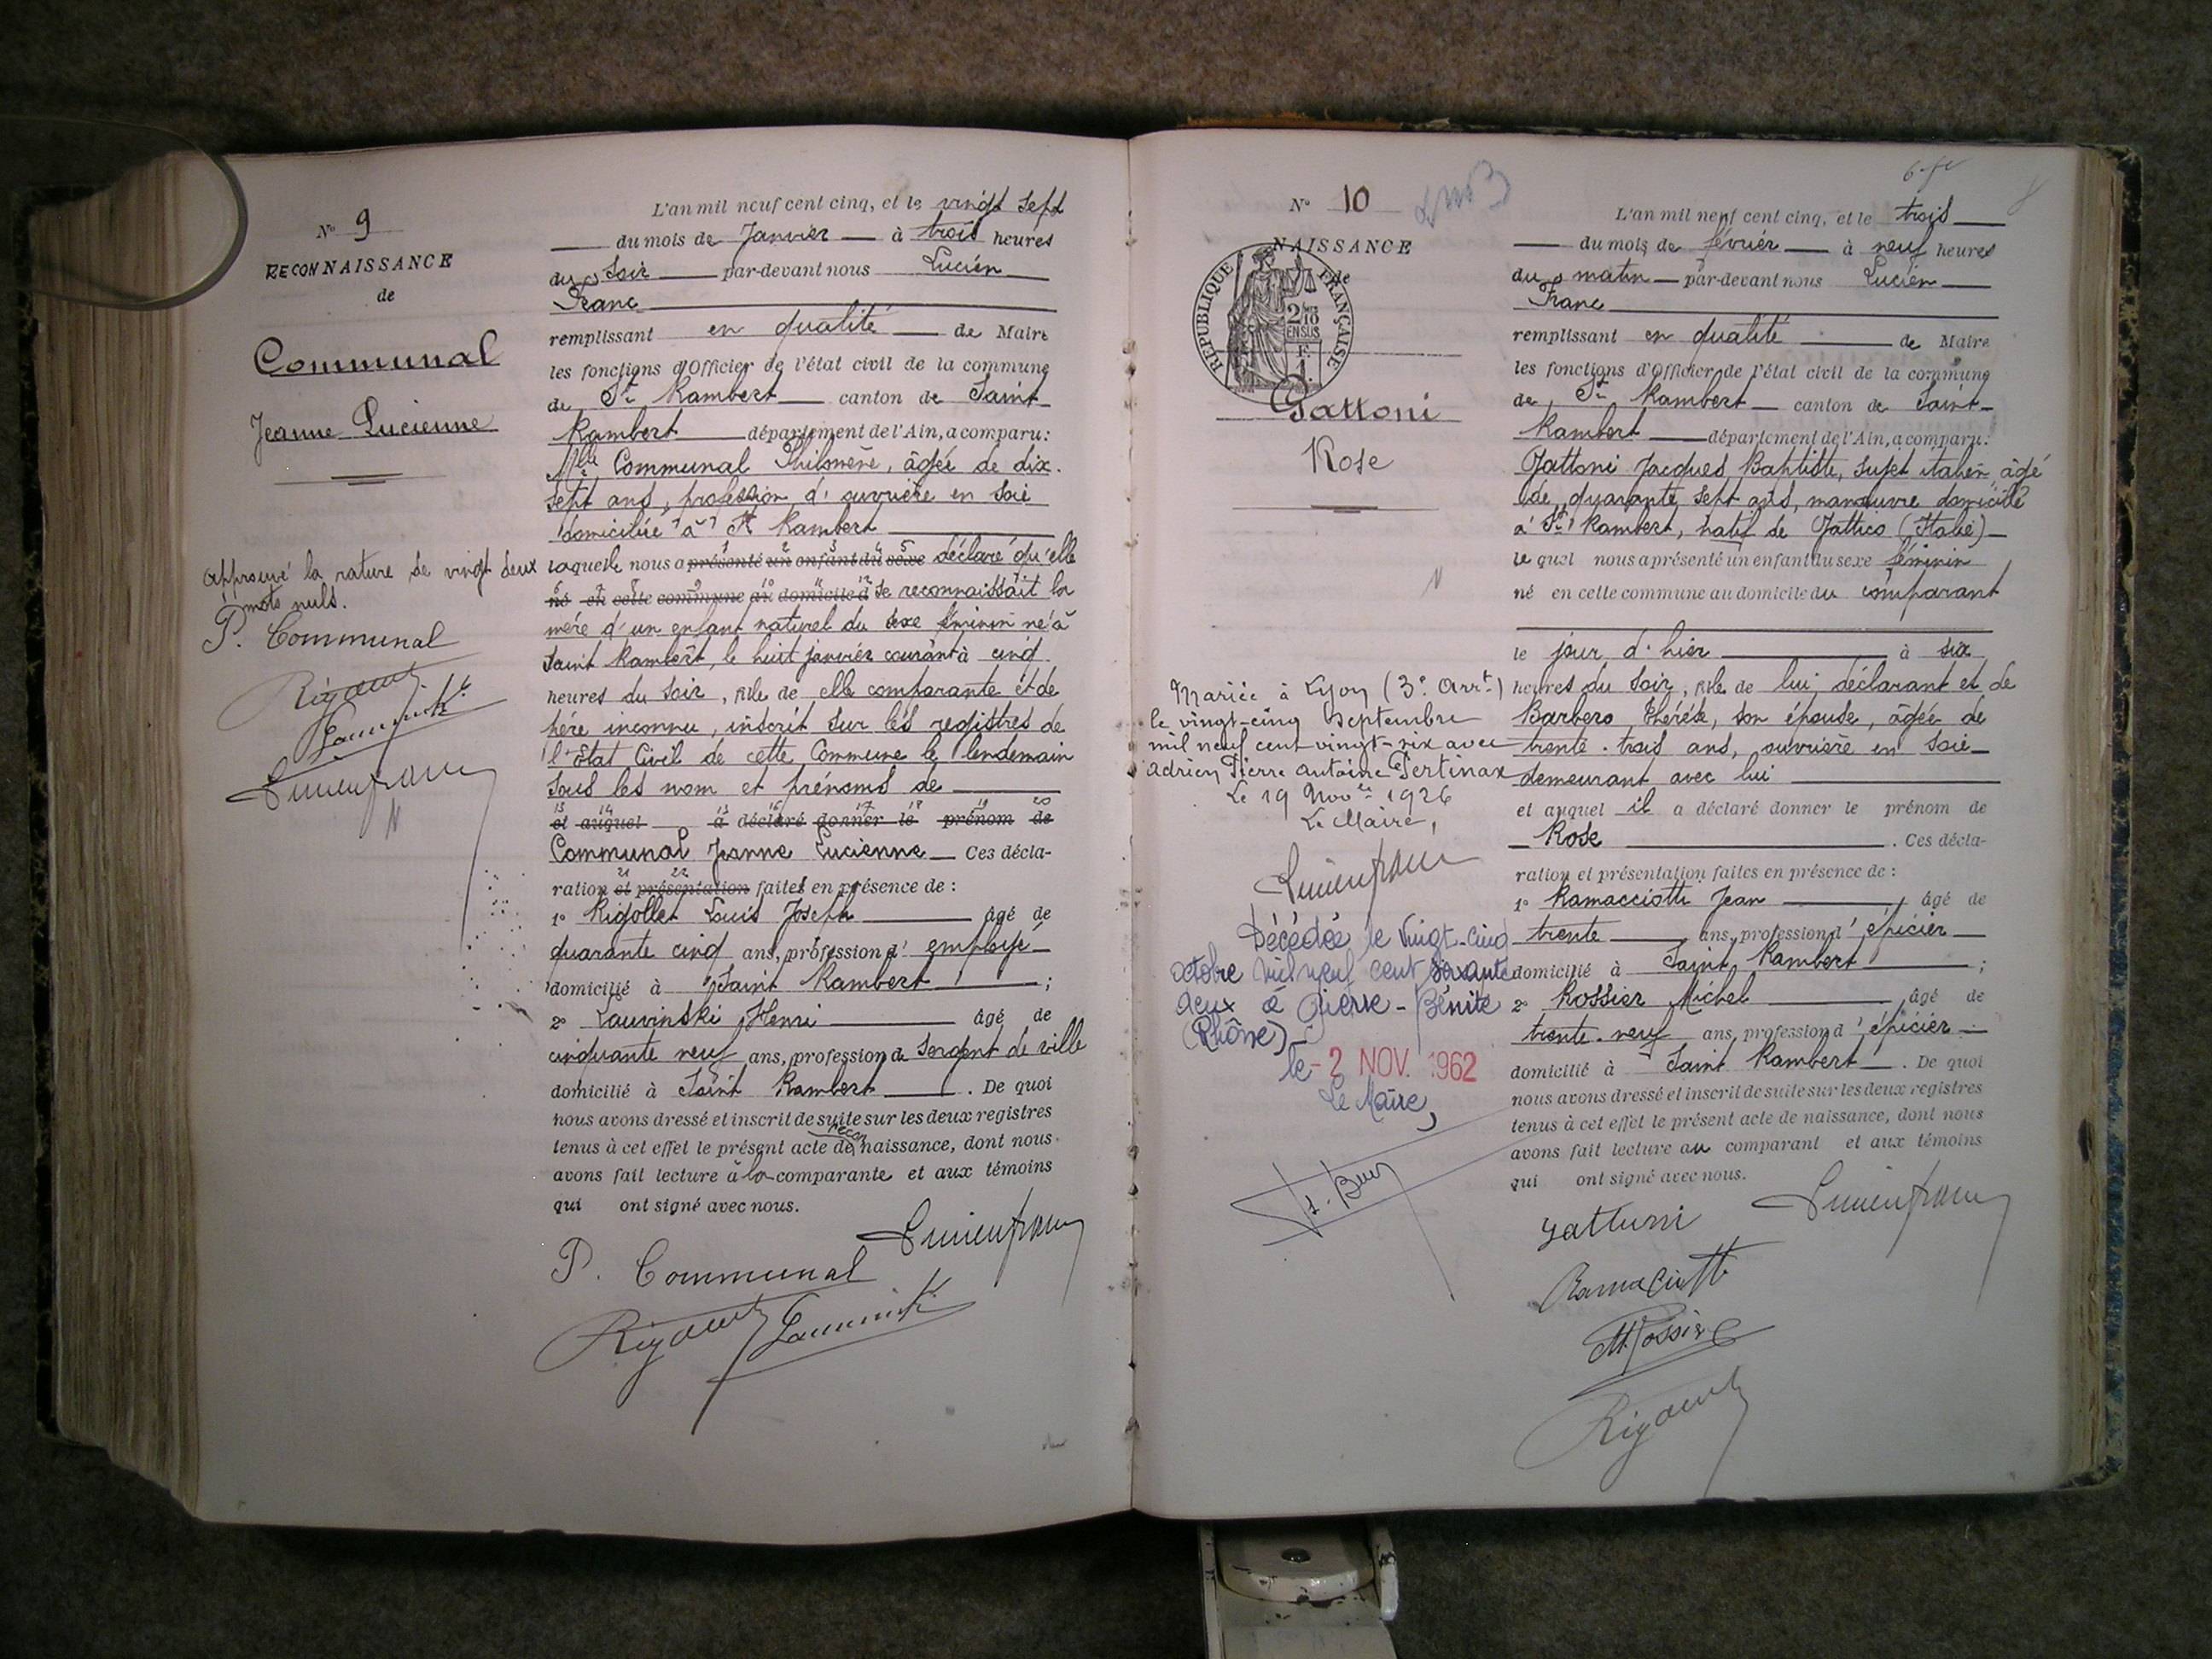 N° 9
RECONNAISSANCE
de
Communal
Jeanne Lucienne
approuvé la rature de vingt deux
mots nuls.
P. Communal
L'an mil neuf cent cinq, et le vingt sept
du mois de Janvier à trois heures
du soir par-devant nous Lucien
Franc
remplissant en qualité de Maire
les fonctions d'Officier de l'état civil de la commune
de St Rambert canton de Saint
Rambert département de l'Ain, a comparu:
Mlle Communal Philomène, âgée de dix.
sept ans, profession d'ouvrière en soie
domiciliée à St Rambert
laquelle nous a présenté un enfant du sexe déclaré qu'elle
né en cette commune au domicile d se reconnaissait la
mère d'un enfant naturel du sexe féminin né à
Saint Rambert, le huit janvier courant à cinq
heures du soir, fille de elle comparante et de
père inconnu, inscrit sur les registres de
l'état Civil de cette Commune le lendemain
sous les nom et prénoms de
et auquel a déclaré donner le prénom de
Communal Jeanne Lucienne Ces décla-
ration et présentation faites en présence de :
1° Rigollet Louis Joseph âgé de
quarante cinq ans, profession d' employé
domicilié à Saint Rambert ;
2° Lauvinski Henri âgé de
cinquante neuf ans, profession de Sergent de ville
domicilié à Saint Rambert . De quoi
nous avons dressé et inscrit de suite sur les deux registres
tenus à cet effet le présent acte de reconnaissance, dont nous
avons fait lecture à la comparante et aux témoins
qui ont signé avec nous.
Lucien franc
P. Communal
N° 10
NAISSANCE
de
REPUBLIQUE FRANÇAISE
2/10
EN SUS
Gattoni
Rose
Mariée à Lyon (3e Arrt)
le vingt-cinq septembre
mil neuf cent vingt-six avec
Adrien Pierre Antoine Pertinax
Le 19 Novbre 1926
Le Maire,
Lucien franc
Décédée le Vingt-cinq
octobre mil neuf cent soixante
deux à Pierre-Bénite
(Rhône)
le - 2 NOV. 1962
Le Maire,
L'an mil neuf cent cinq, et le trois
du mois de février à neuf heures
du matin par-devant nous Lucien
Franc
remplissant en qualité de Maire
les fonctions d'Officier de l'état civil de la commune
de St Rambert canton de Saint-
Rambert département de l'Ain, a comparu:
Gattoni Jacques Baptiste, sujet italien âgé
de quarante sept ans, manœuvre domicilié
à St Rambert, natif de Gattico (Italie)
le quel nous a présenté un enfant du sexe féminin
né en cette commune au domicile du comparant
le jour d'hier à six
heures du soir, fille de lui déclarant et de
Barbero Thérèse, son épouse, âgée de
trente. trois ans, ouvrière en soie
demeurant avec lui
et auquel il a déclaré donner le prénom de
Rose . Ces décla-
ration et présentation faites en présence de :
1° Ramacciotti Jean , âgé de
trente ans, profession d' épicier
domicilié à Saint Rambert ;
2° Rossier Michel , âgé de
trente. neuf ans, profession d' épicier
domicilié à Saint Rambert . De quoi
nous avons dressé et inscrit de suite sur les deux registres
tenus à cet effet le présent acte de naissance, dont nous
avons fait lecture au comparant et aux témoins
qui ont signé avec nous.
Lucien franc
Gattoni
Ramaciotti
M. Rossier